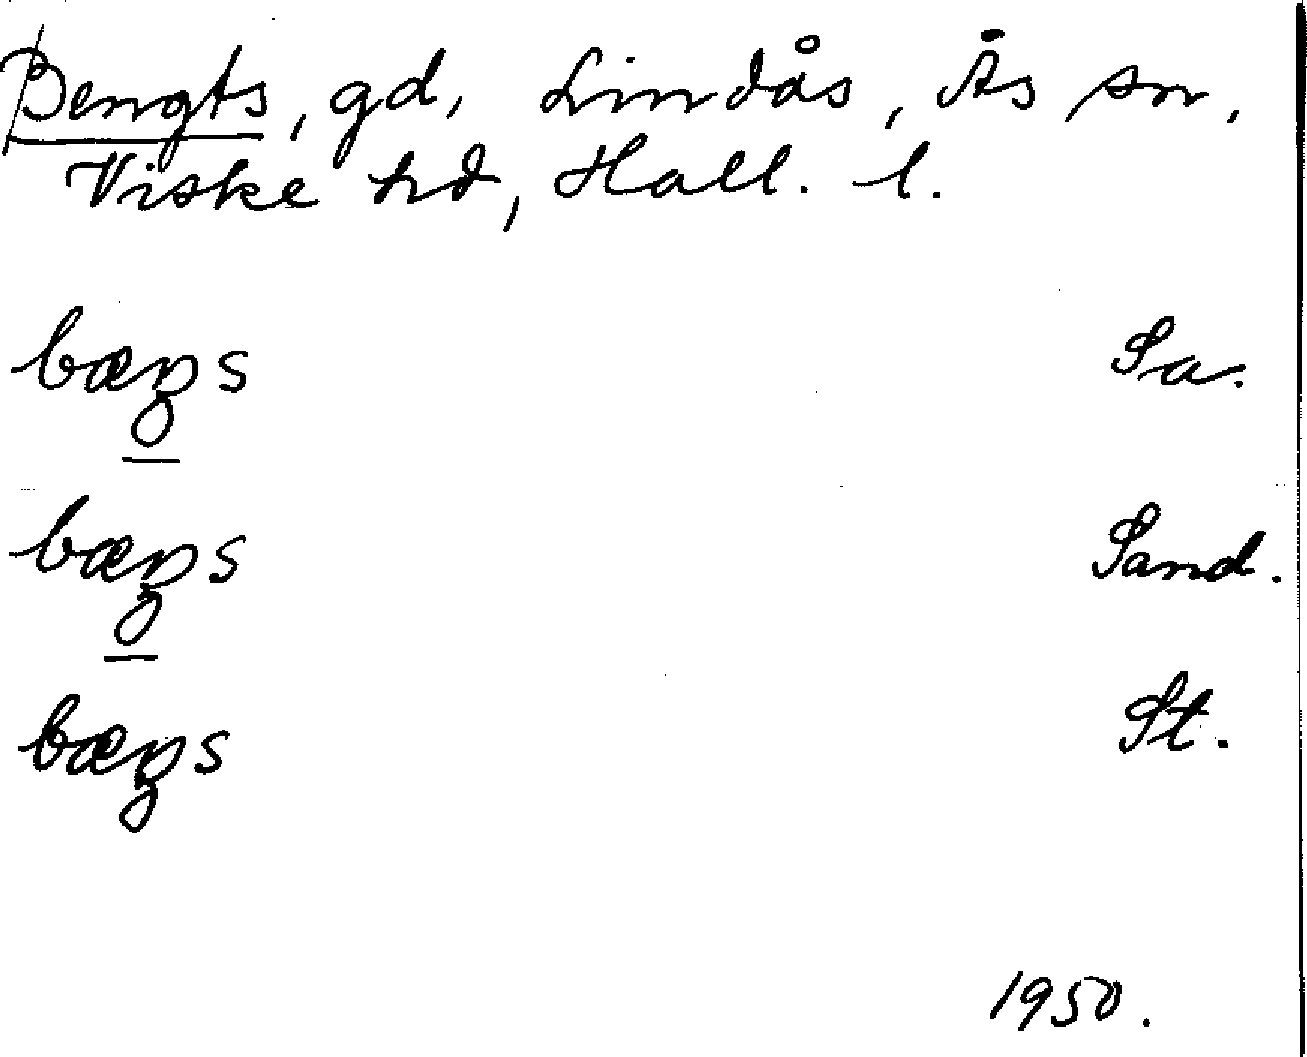 Bengts, gd, Lindås, Ås sn,
Viske hd, Hall. l.
bæŋs Sa.
bæŋs Sand.
bæŋs St.
1950.